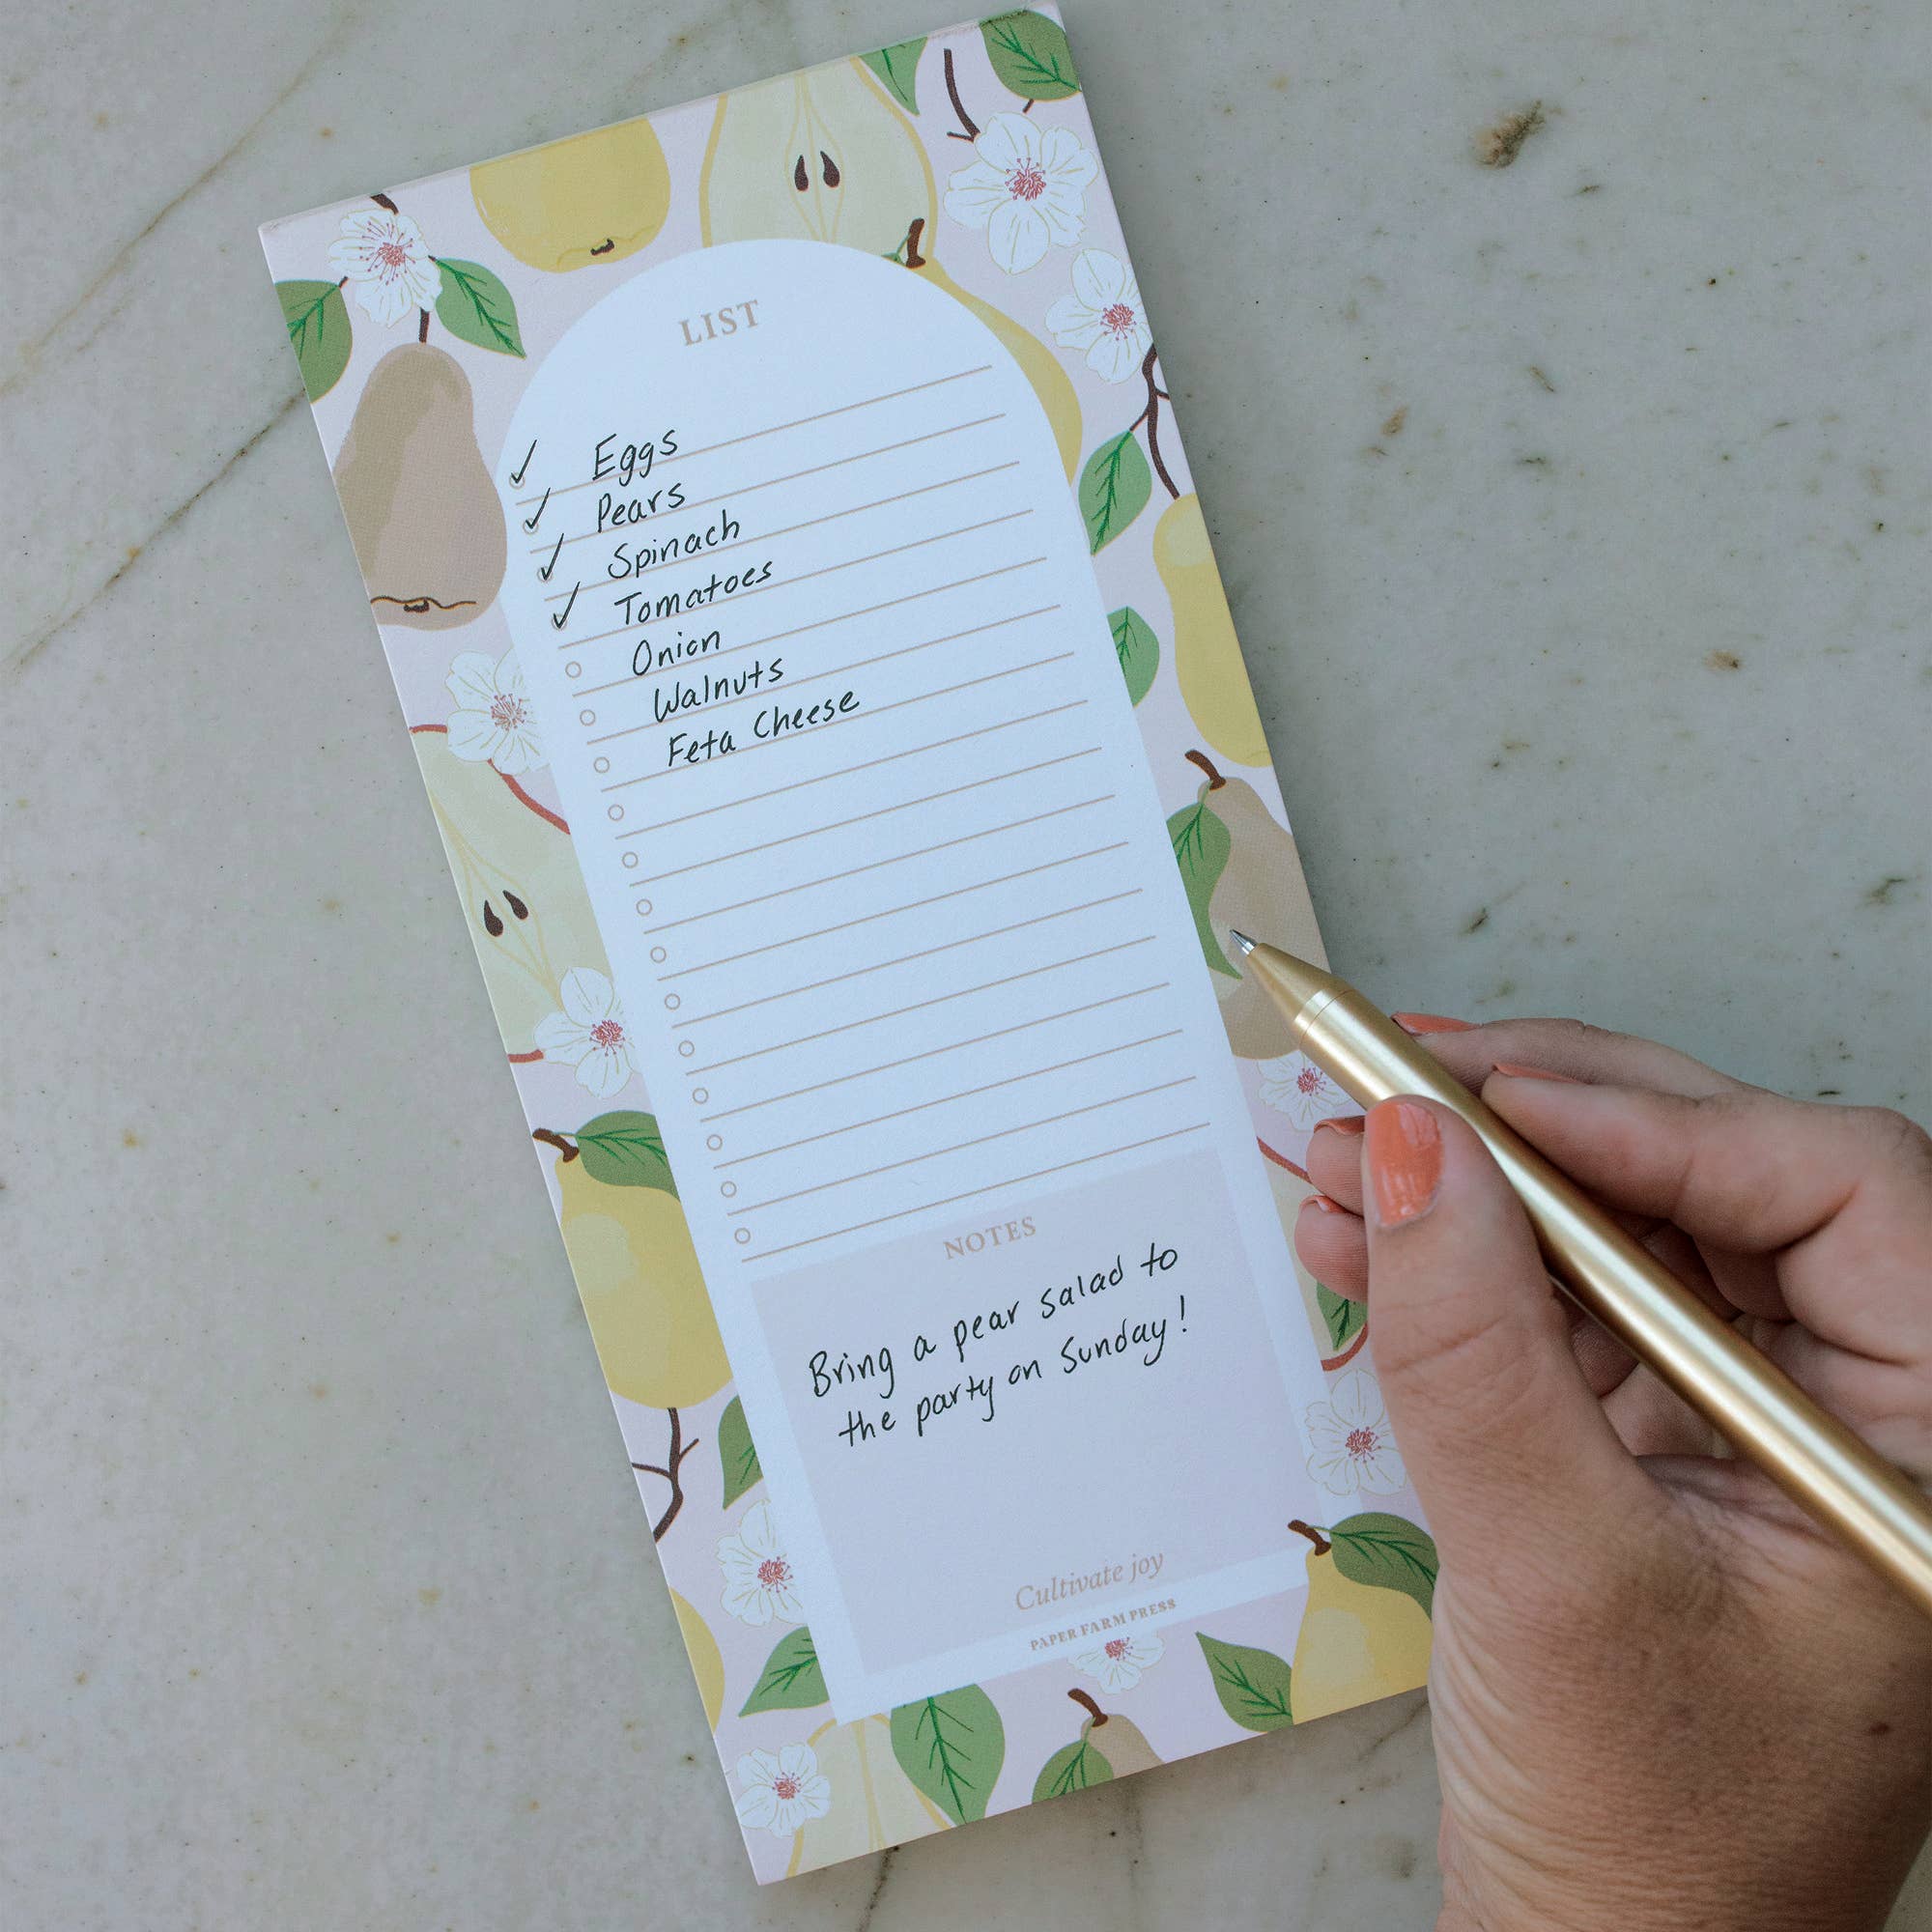 LIST
✓ Eggs
✓ Pears
✓ Spinach
✓ Tomatoes
Onion
Walnuts
Feta Cheese
NOTES
Bring a pear salad to
the party on Sunday!
Cultivate joy
PAPER FARM PRESS